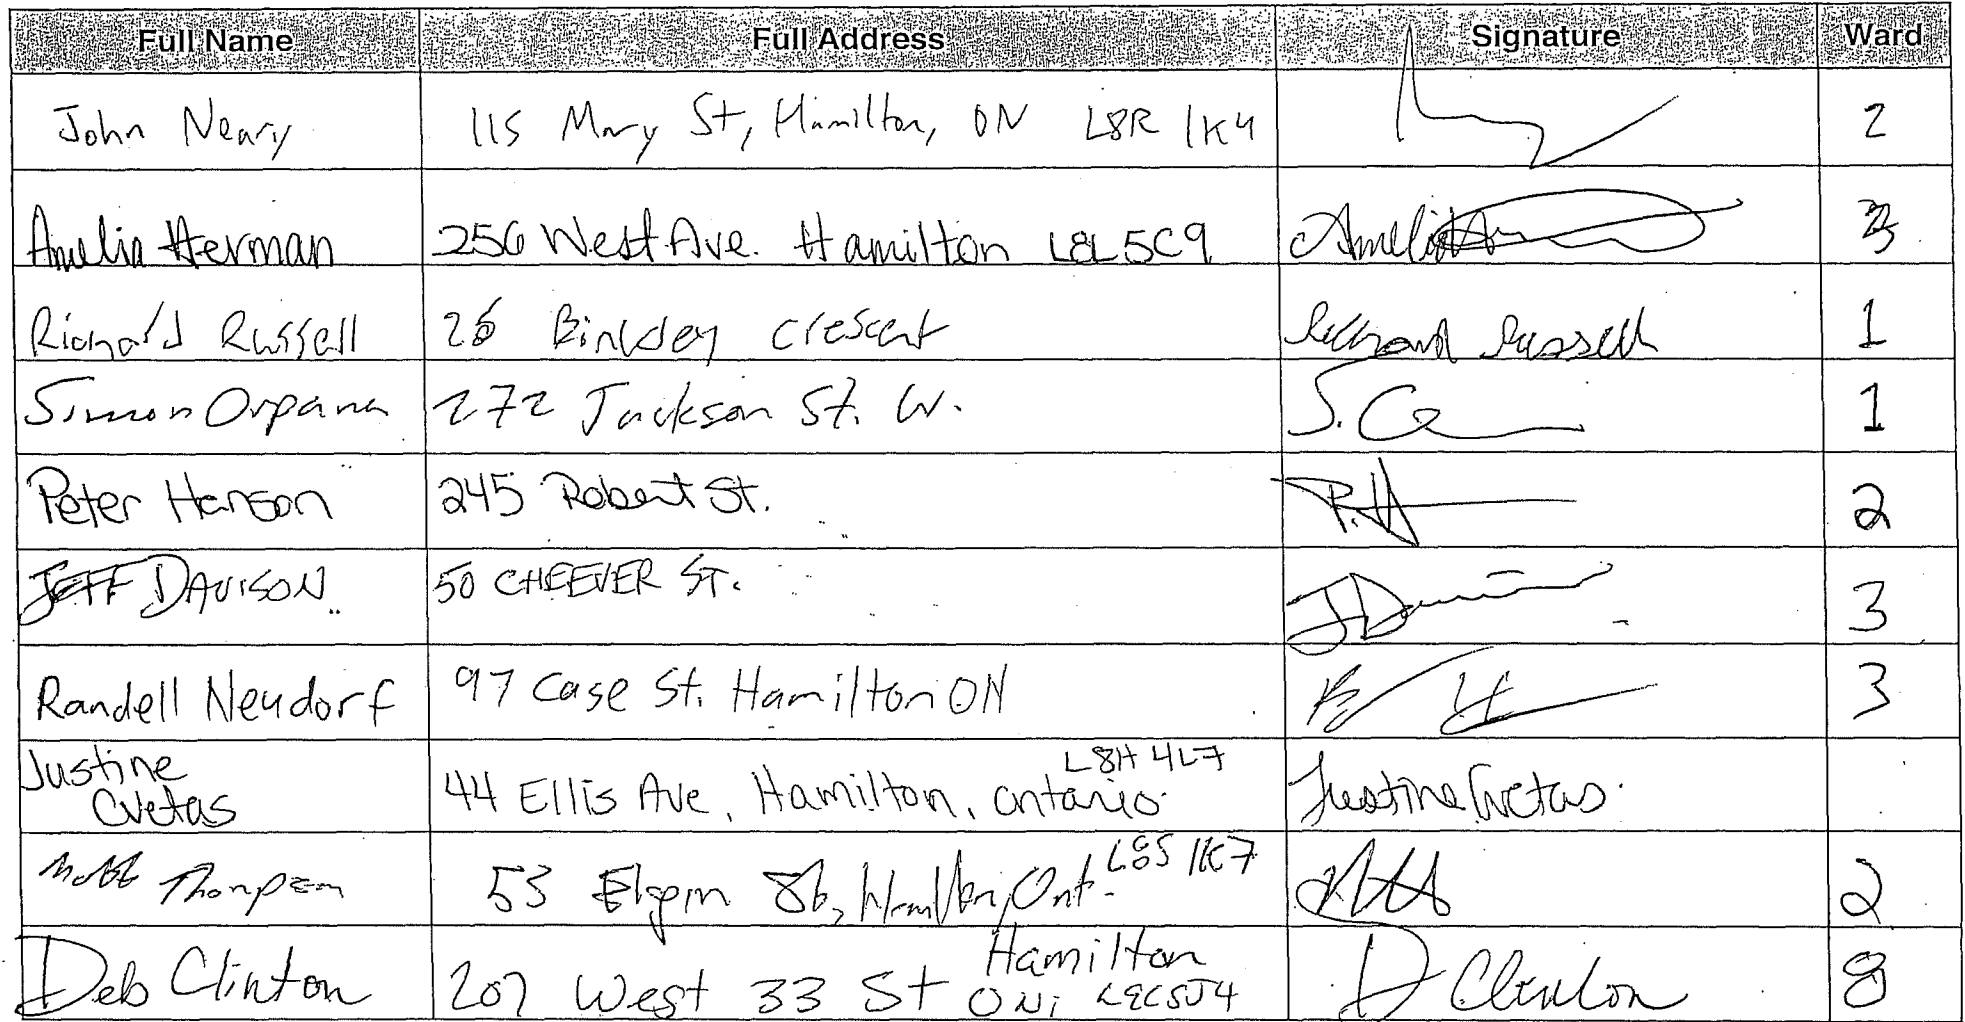 Full Name Full Address Signature Ward
John Neary 115 Mary St, Hamilton, ON L8R 1K4 2
Amelia Herman 256 West Ave. Hamilton L8L5C9 Amelia 3
Richard Russell 26 Binkley Crescent Richard Russell 1
Simon Orpana 272 Jackson St. W. S. O 1
Peter Hanson 245 Robert St. P.H 2
JEFF DAVISON 50 CHEEVER ST. J D 3
Randell Neudorf 97 Case St. Hamilton ON 3
Justine Cvetas 44 Ellis Ave, Hamilton, Ontario L8H 4L7 Justine Cvetas
Matt Thompson 53 Elgin St, Hamilton, Ont. L8S 1K7 2
Deb Clinton 207 West 33 St Hamilton ON L9C5J4 D Clinton 8